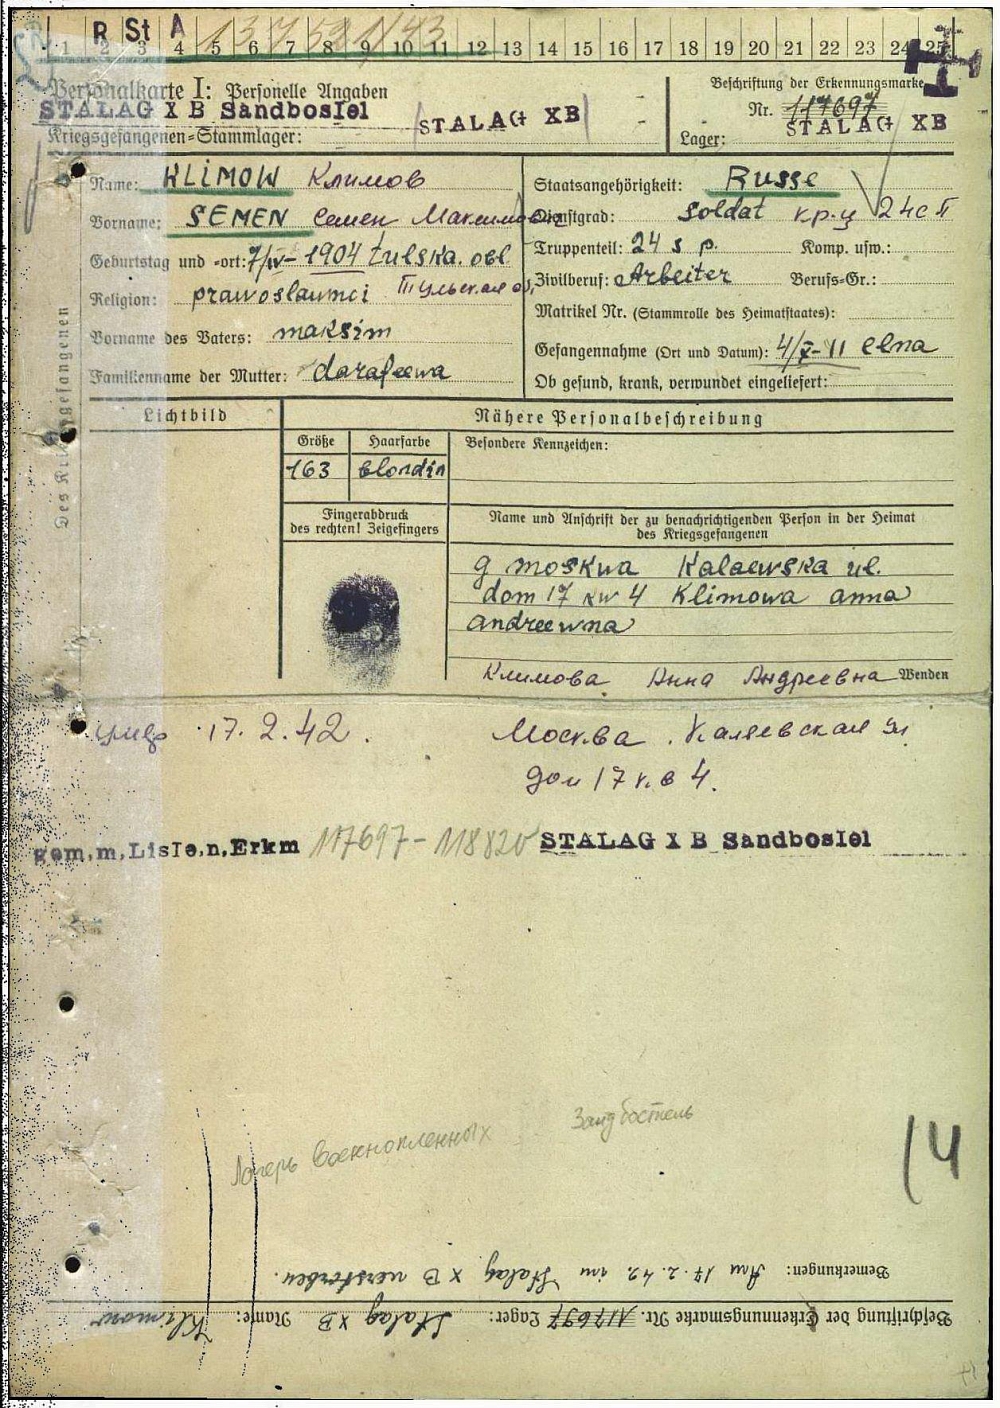 R St A
1 2 3 4 5 6 7 8 9 10 11 12 13 14 15 16 17 18 19 20 21 22 23 24 25
Personalkarte I: Personelle Angaben
STALAG X B Sandbostel
Kriegsgefangenen-Stammlager: STALAG XB
Beschriftung der Erkennungsmarke
Nr. 117697
Lager: STALAG XB
Des Kriegsgefangenen
Name: KLIMOW Климов
Vorname: SEMEN Семен Максимович
Geburtstag und -ort: 7/IV- 1904 tulska. obl
Religion: prawoslawnci Тульская о
Vorname des Vaters: maksim
Familienname der Mutter: darafeewa
Staatsangehörigkeit: Russe
Dienstgrad: Soldat кр-ц 24 сп
Truppenteil: 24 s p. Komp. usw.:
Zivilberuf: Arbeiter Berufs-Gr.:
Matrikel Nr. (Stammrolle des Heimatstaates):
Gefangennahme (Ort und Datum): 4/X-11 elna
Ob gesund, krank, verwundet eingeliefert:
Lichtbild
Nähere Personalbeschreibung
Größe Haarfarbe Besondere Kennzeichen:
163 blondin
Fingerabdruck
des rechten! Zeigefingers
Name und Anschrift der zu benachrichtigenden Person in der Heimat
des Kriegsgefangenen
g moskwa Kalaewska ul.
dom 17 kw 4 Klimowa anna
andreewna
Климова Анна Андреевна Wenden
умер 17.2.42. Москва. Каляевская ул.
дом 17 кв 4.
gem.m.Liste.n.Erkm 117697-118820 STALAG X B Sandbostel
Лагерь военнопленных Зандбостель
14
Bemerkungen: Am 17.2.42. im Stalag X B verstorben.
Beschriftung der Erkennungsmarke Nr. 117697 Lager: Stalag XB Name: Klimow